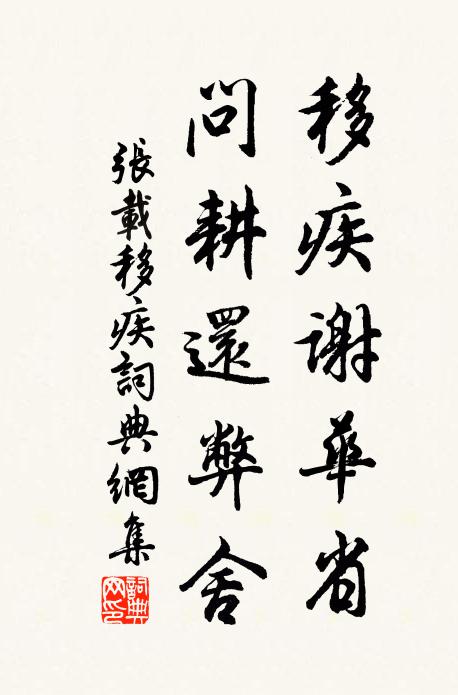 移疾謝華省
問耕還弊舍
張載移疾詞典網集
詞典網印